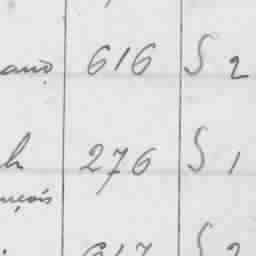 616 S 2
276 S 1
nçois
617 S 2